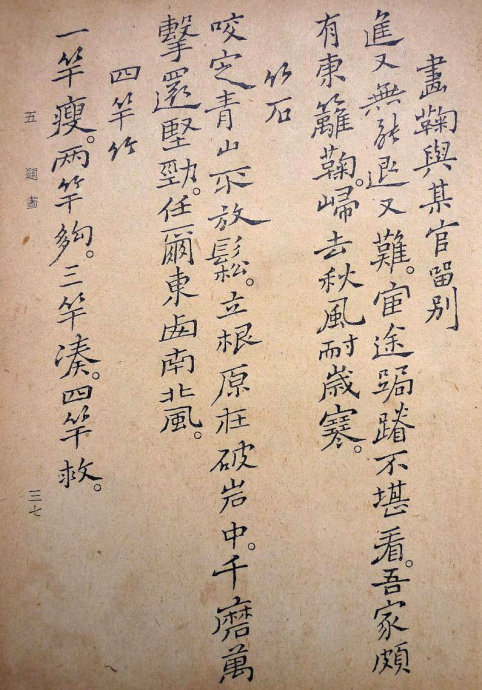 畫鞠與某官留别
進又無能退又難。宦途跼蹐不堪看。吾家頗
有東籬鞠。歸去秋風耐歲寒。
竹石
咬定青山不放鬆。立根原在破岩中。千磨萬
擊還堅勁。任爾東西南北風。
四竿竹
一竿瘦。两竿夠。三竿凑。四竿救。
五 題畫
三七